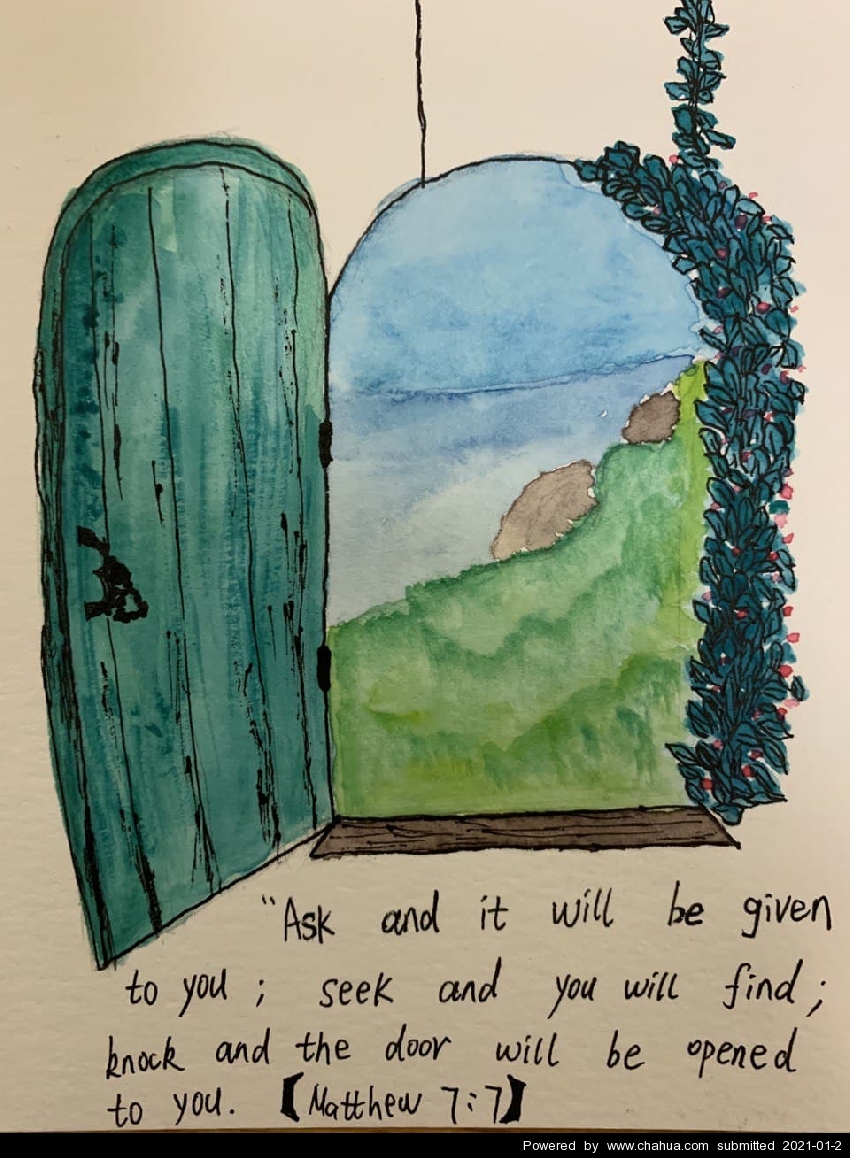 "Ask and it will be given
to you ; seek and you will find ;
knock and the door will be opened
to you. 【Matthew 7:7】
Powered by www.chahua.com submitted 2021-01-2